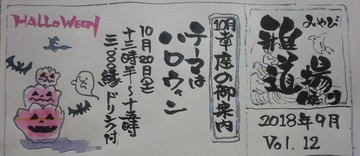 みやび
雅道場
便り
2018年9月
Vol.12
10月幸席の御案内
テーマは
ハロウィン
10月20日(土)
十三時半～十五時
三〇〇〇縁ドリンク付
HALLOWEEN